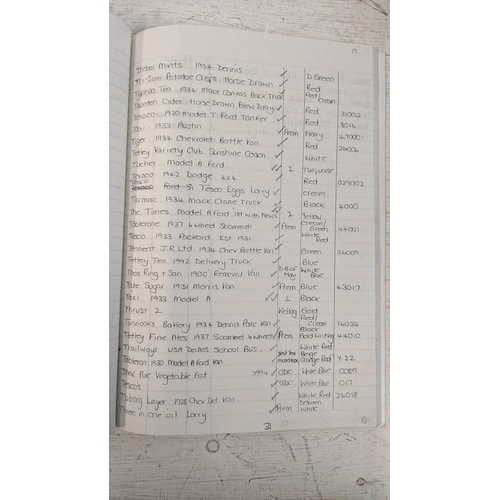 19
Trebor Mints 1934 Dennis ✓ D. Green
Tri-Sum Potatoe Crisps Horse Drawn ✓ Red
Typhoo Tea 1934 Mack Canvas Back Truck ✓ Red/Cream
Taunton Cider Horse Drawn Brew Dray ✓ Red
Texaco 1920 Model T. Ford Tanker ✓ Red
Taxi 1933 Austin Prem Navy 47000
Tiger 1934 Chevrolet Bottle Van ✓ Red 26004
Tetley Variety Club Sunshine Coach ✓ White
Tucher Model A Ford ✓ 2 Turquoise
Texaco 1942 Dodge 4x4 ✓ Red 029002
Tesco Ford Tesco Eggs Lorry ✓ Cream
Tarmac 1934 Mack Crane Truck ✓ Black 4000
The Times Model A Ford 1st with News ✓ 2 Yellow
Toblerone 1937 6 wheel Scammel ✓ Prem Cream/Green 44001
Tesco 1933 Packard Est 1931 ✓ White Red
Tennent J.R Ltd 1934 Chev Bottle Van ✓ Green 26009
Tetley Tea 1992 Delivery Truck ✓ Blue
Thos Ring + Son 1900 Removal Van D.B of May White Blue
Tate Sugar 1931 Morris Van ✓ Prem Blue 43017
Taxi 1933 Model A ✓✓ 2 Black
Thrust 2 Kellog Gold
Tunnocks Bakery 1934 Dennis Parc Van ✓ Red/Cream 16032
Tetley Fine Ales 1937 Scammel 6 wheeler ✓ Prem Black Gold Writing 44010
Trailways USA Dallas School Bus ✓ White Red
Tobleron 1930 Model A Ford Van ✓ Orange Red Y 22
Pure Vegetable Fat 2994 ✓ ODC White Blue 0089
Tesco's ✓ ODC White Blue 017
Tuborg Lager 1928 Chev Del. Van ✓ White Red 26018
Three in one oil Lorry Prem White
31
10